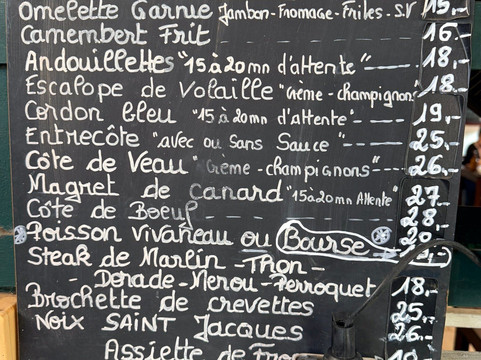 Omelette Garnie Jambon-Fromage-Frites-S.V 15,-
Camembert Frit 16.-
Andouillettes "15 à 20mn d'attente" 18,-
Escalope de Volaille "Crème-champignons 18.-
Cordon bleu "15 à 20mn d'attente" - 19,-
Entrecôte "avec ou Sans Sauce" 25,-
Côte de Veau "Crème-champignons" 26,-
Magret de canard "15à20mn Attente" 27.-
Côte de Boeuf 28,-
Poisson Vivaneau ou Bourse
Steak de Marlin - Thon -
- Dorade - Merou - Perroquet 18,-
Brochette de crevettes 25,-
Noix SAINT Jacques 26,-
Assiette de